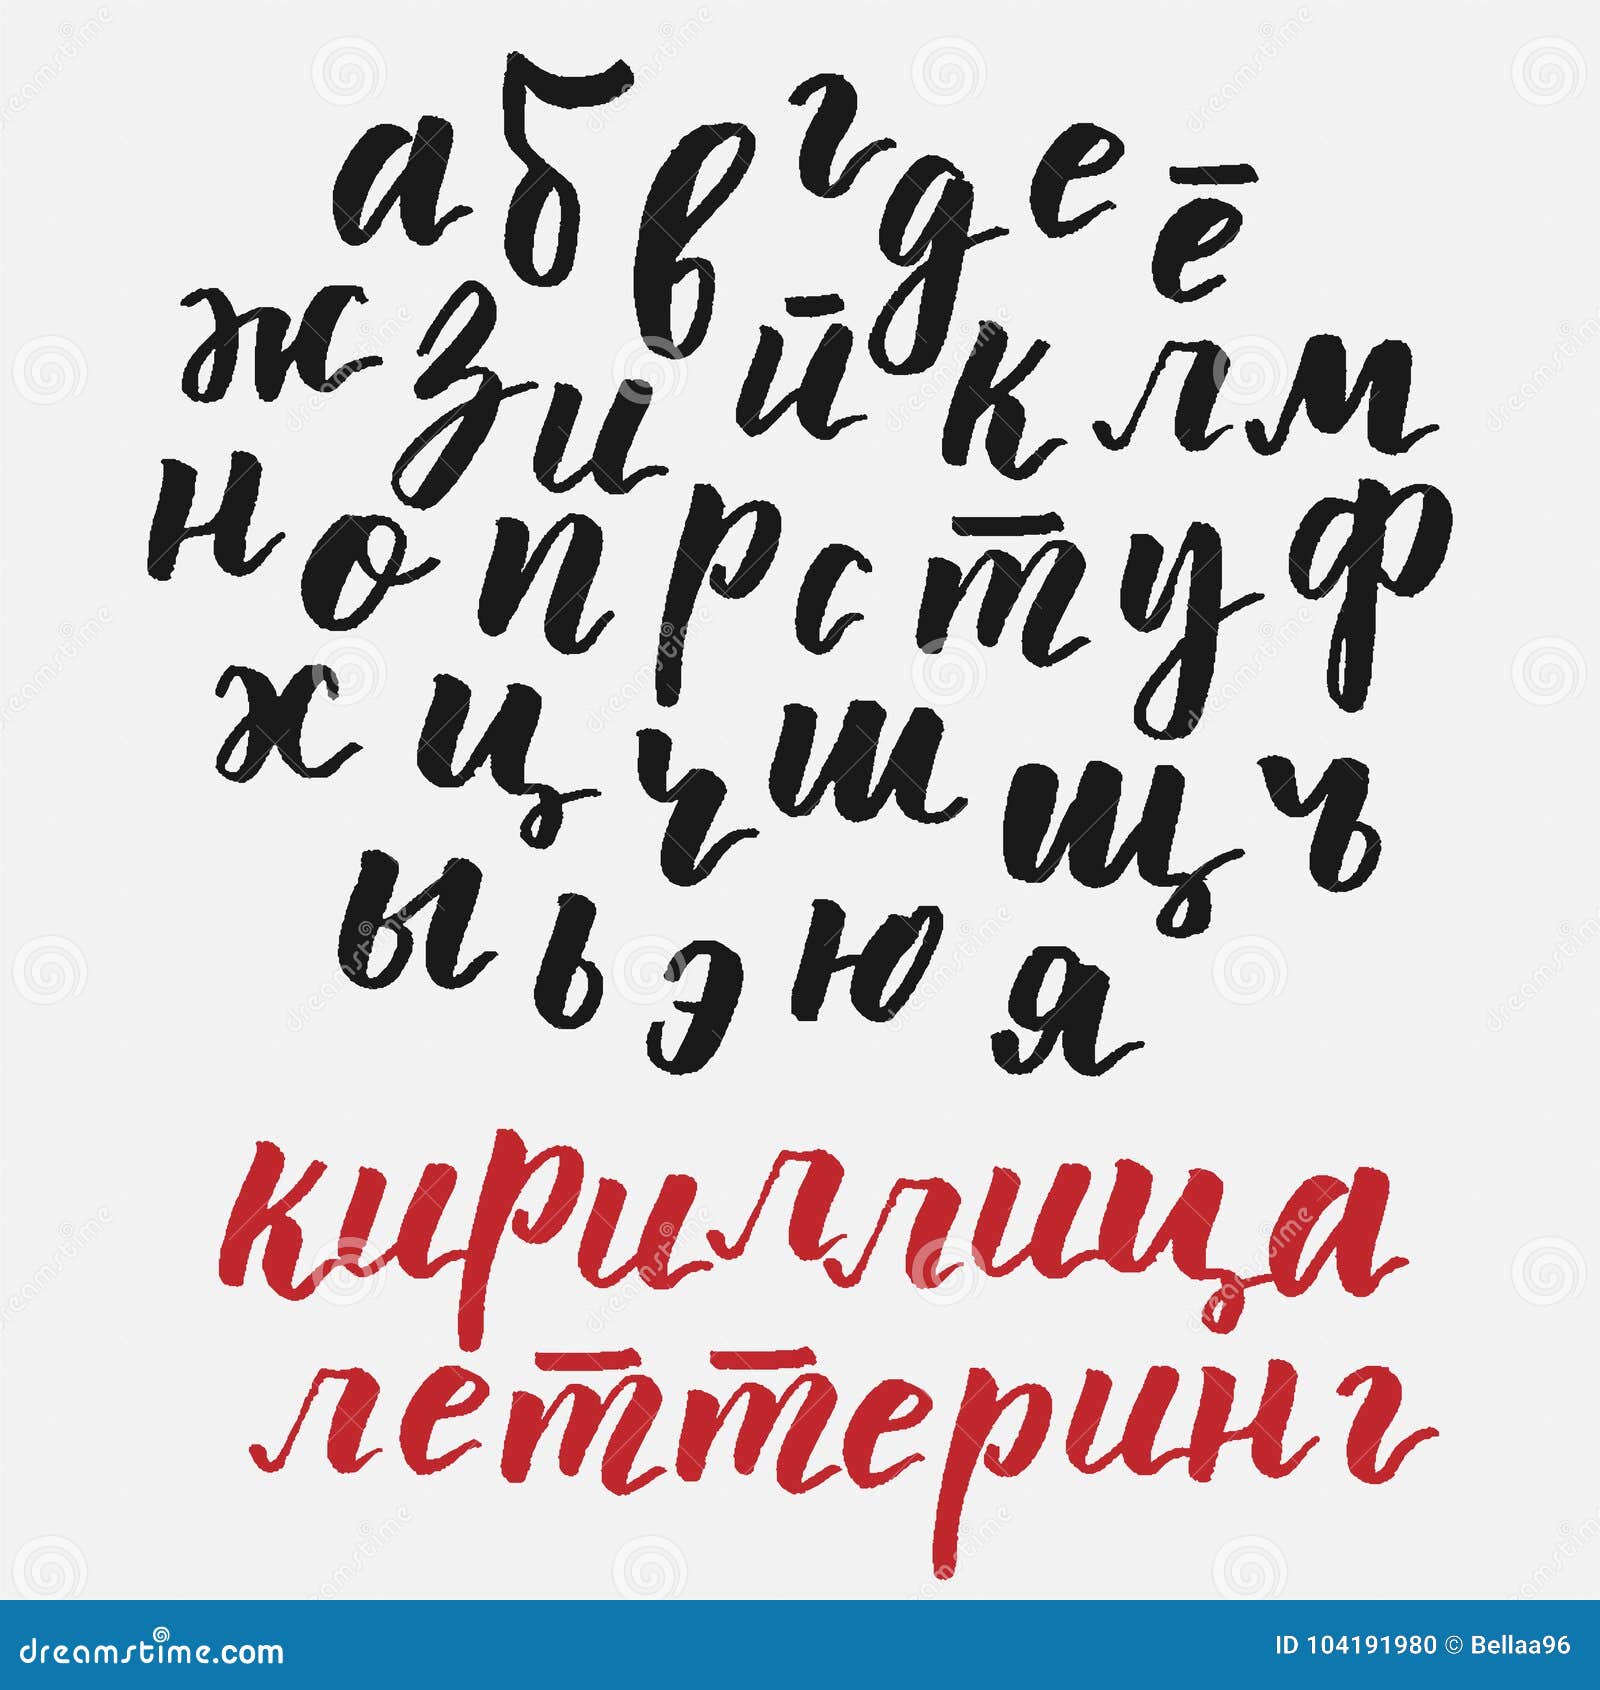 а б в г д е ё
ж з и й к л м
н о п р с т у ф
х ц ч ш щ ъ
ы ь э ю я
кириллица
леттеринг
dreamstime.com
ID 104191980 © Bellaa96